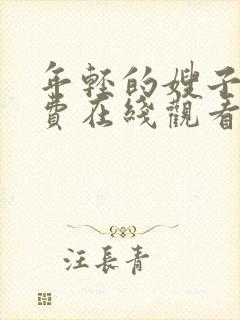 年轻的嫂子
費在綫觀看
汪長青